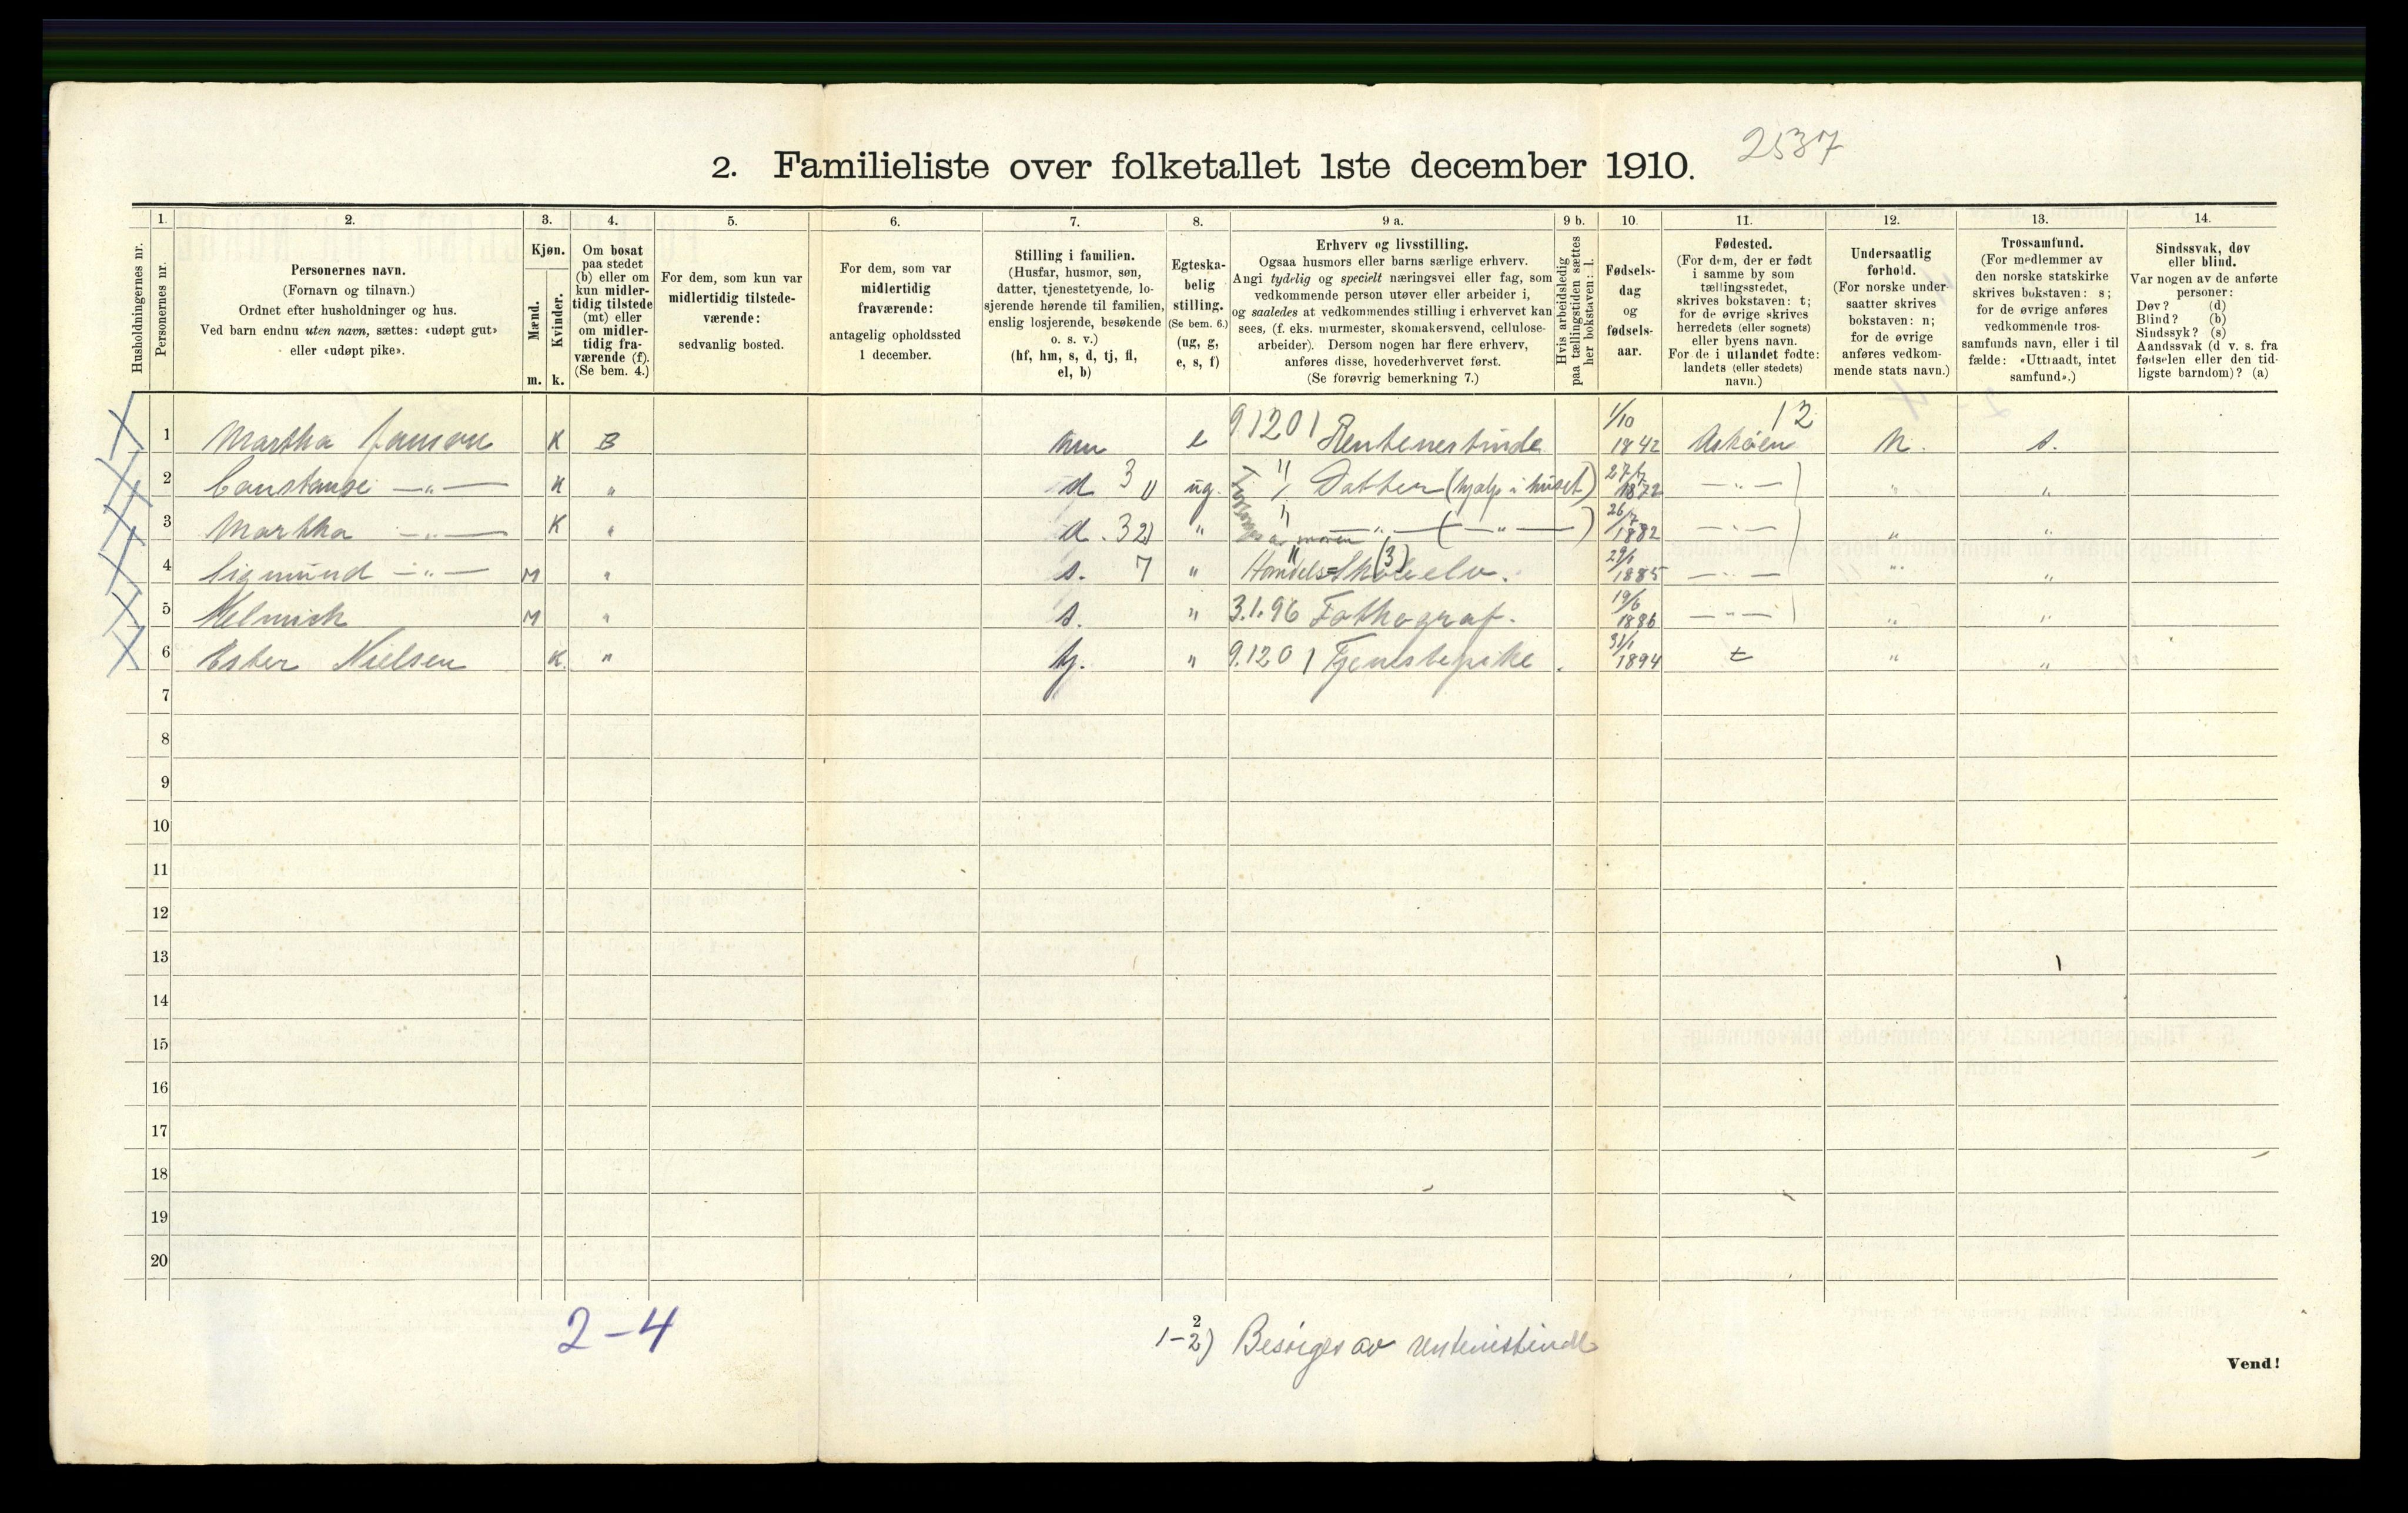 2537
2. Familieliste over folketallet 1ste december 1910.
Husholdningernes nr.
1.
Personernes nr.
2.
Personernes navn.
(Fornavn og tilnavn.)
Ordnet efter husholdninger og hus.
Ved barn endnu uten navn, sættes: «udøpt gut»
eller «udøpt pike».
3.
Kjøn.
Mænd.
Kvinder.
m. k.
4.
Om bosat
paa stedet
(b) eller om
kun midler-
tidig tilstede
(mt) eller
om midler-
tidig fra-
værende (f).
(Se bem. 4.)
5.
For dem, som kun var
midlertidig tilstede-
værende:
sedvanlig bosted.
6.
For dem, som var
midlertidig
fraværende:
antagelig opholdssted
1 december.
7.
Stilling i familien.
(Husfar, husmor, søn,
datter, tjenestetyende, lo-
sjerende hørende til familien,
enslig losjerende, besøkende
o. s. v.)
(hf, hm, s, d, tj, fl,
el, b)
8.
Egteska-
belig
stilling.
(Se bem. 6.)
(ug, g,
e, s, f)
9 a.
Erhverv og livsstilling.
Ogsaa husmors eller barns særlige erhverv.
Angi tydelig og specielt næringsvei eller fag, som
vedkommende person utøver eller arbeider i,
og saaledes at vedkommendes stilling i erhvervet kan
sees, (f. eks. murmester, skomakersvend, cellulose-
arbeider). Dersom nogen har flere erhverv,
anføres disse, hovederhvervet først.
(Se forøvrig bemerkning 7.)
9 b.
Hvis arbeidsledig
paa tællingstiden sættes
her bokstaven: l.
10.
Fødsels-
dag
og
fødsels-
aar.
11.
Fødested.
(For dem, der er født
i samme by som
tællingsstedet,
skrives bokstaven: t;
for de øvrige skrives
herredets (eller sognets)
eller byens navn.
For de i utlandet fødte:
landets (eller stedets)
navn.)
12.
Undersaatlig
forhold.
(For norske under-
saatter skrives
bokstaven: n;
for de øvrige
anføres vedkom-
mende stats navn.)
13.
Trossamfund.
(For medlemmer av
den norske statskirke
skrives bokstaven: s;
for de øvrige anføres
vedkommende tros-
samfunds navn, eller i til
fælde: «Uttraadt, intet
samfund».)
14.
Sindssvak, døv
eller blind.
Var nogen av de anførte
personer:
Døv? (d)
Blind? (b)
Sindssyk? (s)
Aandssvak (d v. s. fra
fødselen eller den tid-
ligste barndom)? (a)
1 Martha Janson K B hm e 9.1201 Rentenestinde 1/10 1842 Askøen 12 N. s.
2 Constanse —„— K „ d 3 1) ug. " Datter (hjælp i huset) 27/7 1872 —„— „ „
3 Martha —„— K „ d. 3 2) „ " —„— (—„—) 26/7 1882 —„— „ „
4 Sigmund —„— M „ s. 7 „ " Handels=Skoleelv. (3) 29/1 1885 —„— „ „
5 Helmich M „ s. „ 3.1.96 Fothograf. 19/6 1886 —„— „ „
6 Ester Nielsen K „ tj. „ 9.1201 Tjenestepike. 31/1 1894 t „ „
7
8
9
10
11
12
13
14
15
16
17
18
19
20
2-4
1-2 2) Besørges av rentenistinde
Vend!